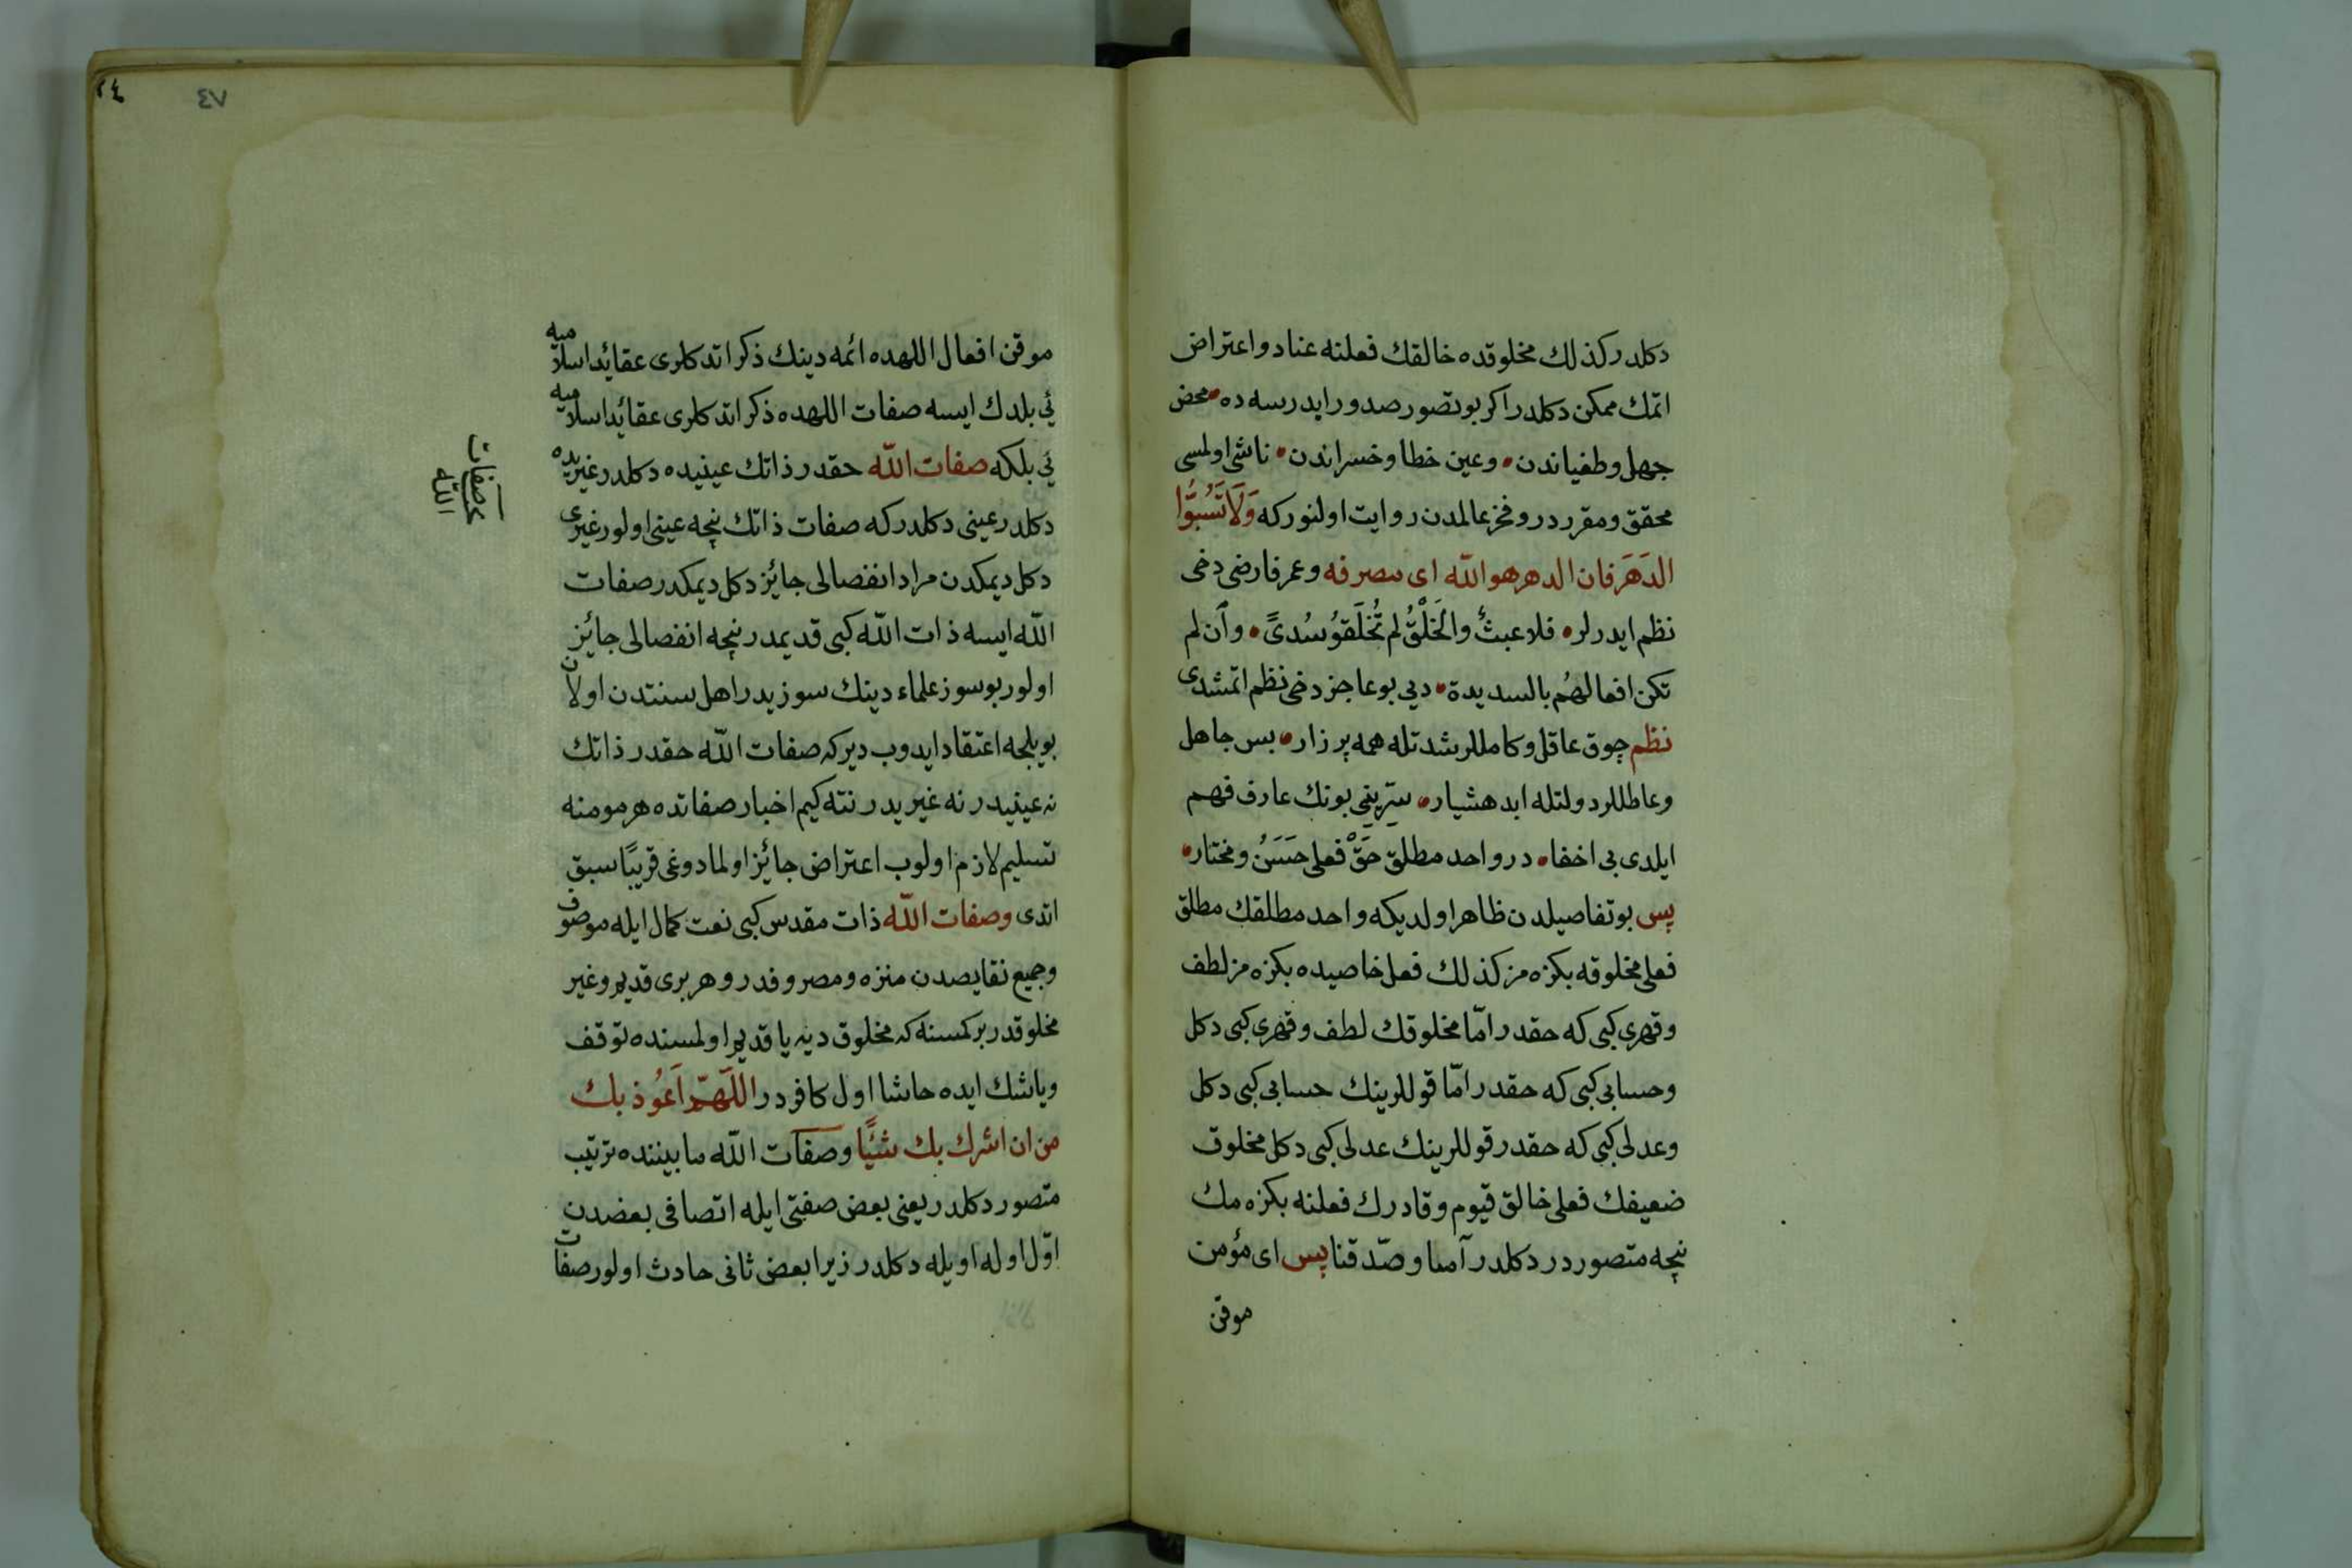 دكلدر كذلك مخلوقده خالقك فعلنه عناد و اعتراض
اتمك ممكن دكلدر اكر بو تصور صدور ايدرسه ده محض
جهل و طغياندن وعين خطا و خسراندن ناشى اولمسى
محقق و مقرر در و فخر عالمدن روايت اولنور كه وَلَا تَسُبُّوا
الدَهَر فان الدهر هو الله اى مصرفه و عمر فارضى دخى
نظم ايدرلر فلا عبثٌ والَخَلْقُ لم تُخلَقوُ سُدىً وأن لم
تكن افعالهُم بالسديدة ديى بو عاجز دخى نظم اتمشدى
نظم چوق عاقل و كامللر شدتله همه پر زار بس جاهل
وعاطللر دولتله ابد هشيار سرّينى بونك عارف فهم
ايلدى بى اخفا در واحد مطلق حَقْ فعلى حَسَنُ و مختار
پس بو تفاصيلدن ظاهر اولديكه واحد مطلقك مطلق
فعلى مخلوقه بكزه مز كذلك فعل خاصيده بكزه مز لطف
و قهرى كبى كه حقدر امّا مخلوقك لطف و قهرى كبى دكل
وحسابى كبى كه حقدر امّا قوللرينك حسابى كبى دكل
وعدلى كبى كه حقدر قوللرينك عدلى كبى دكل مخلوق
ضعيفك فعلى خالق قيوم و قادرك فعلنه بكزه مك
نيچه متصور در دكلدر آمنا و صدّقنا پس اى مؤمن
موقن
٤٧
موقن افعال اللهده ائمه دينك ذكر اتدكلرى عقائد اسلاميه
يى بلدك ايسه صفات اللهده ذكر اتدكلرى عقائد اسلاميه
يى بلكه صفات الله حقدر ذاتك عينيده دكلدر غيريده
دكلدر عينى دكلدر كه صفات ذاتك نيچه عينى اولور غيرى
دكل ديمكدن مراد انفصالى جائز دكل ديمكدر صفات
الله ايسه ذات الله كبى قديمدر نيچه انفصالى جائز
اولور بو سوز علماء دينك سوزيدر اهل سنتدن اولان
بويلجه اعتقاد ايدوب ديركه صفات الله حقدر ذاتك
نه عينيدر نه غيريدر نته كيم اخبار صفاتده هر مومنه
تسليم لازم اولوب اعتراض جائز اولمادوغى قريبًا سبق
اتدى وصفات الله ذات مقدس كبى نعت كمال ايله موصوف
وجميع نقايصدن منزه و مصروفدر و هر برى قديم و غير
مخلوقدر بر كمسنه كه مخلوق ديه يا قديم اولمسنده توقف
ويا شك ايده حاشا اول كافر در اللّهمّ اَعُوذ بك
من ان اشرك بك شئيًا وصفات الله مابيننده ترتيب
متصور دكلدر يعنى بعض صفتى ايله اتصافى بعضدن
اوّل اوله اويله دكلدر زيرا بعض ثانى حادث اولور صفات
صفات
الله